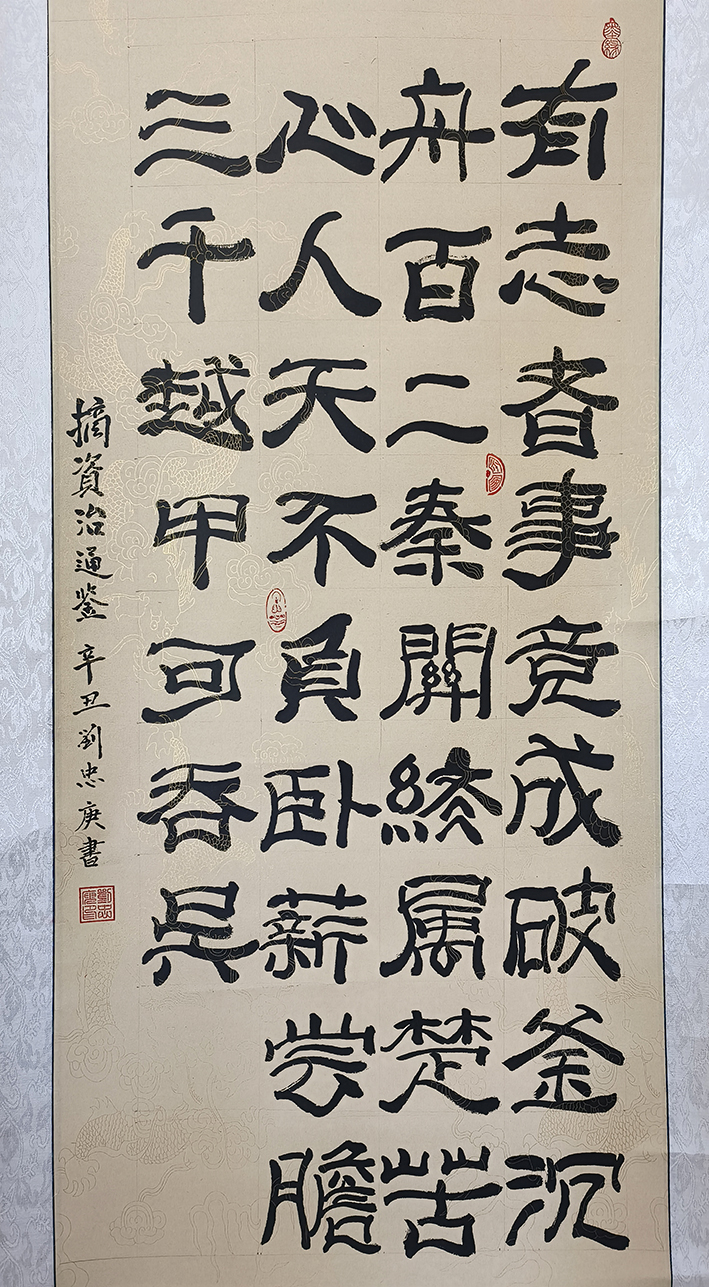 有志者事竟成破釜沉
舟百二秦關終属楚苦
心人天不負卧薪尝膽
三千越甲可吞吳
摘資治通鉴 辛丑劉忠庚書